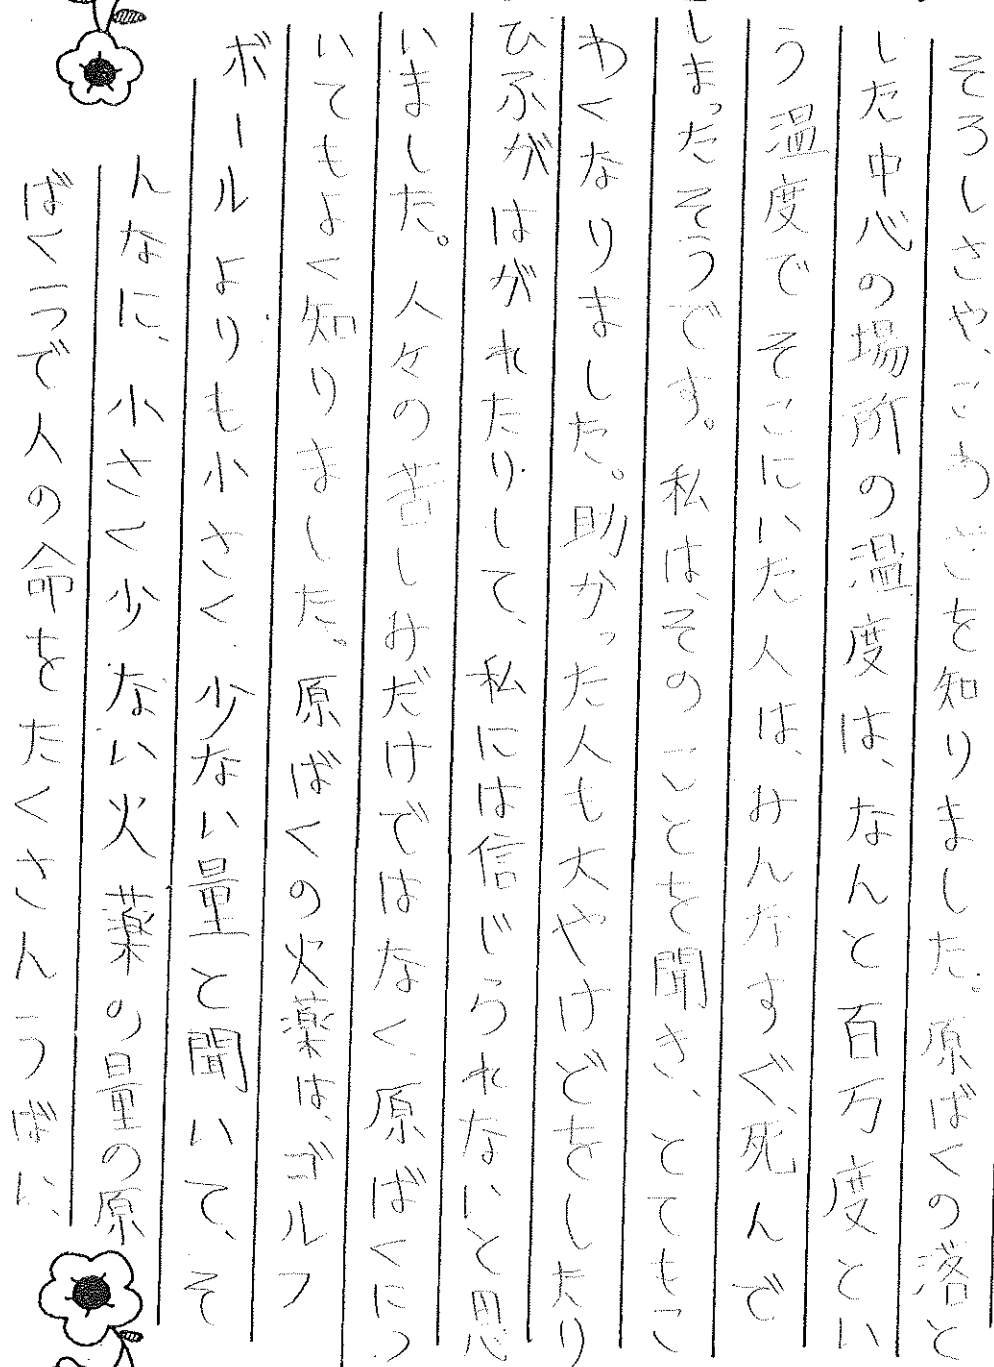 そろしさや、こわさを知りました。原ばくの落と
した中心の場所の温度は、なんと百万度とい
う温度でそこにいた人は、みんなすぐ死んで
しまったそうです。私は、そのことを聞き、とてもこ
わくなりました。助かった人も大やけどをしたり
ひふがはがれたりして、私には信じられないと思
いました。人々の苦しみだけではなく、原ばくにつ
いてもよく知りました。原ばくの火薬は、ゴルフ
ボールよりも小さく、少ない量と聞いて、そ
んなに、小さく少ない火薬の量の原
ばく一つで人の命をたくさんうばい、